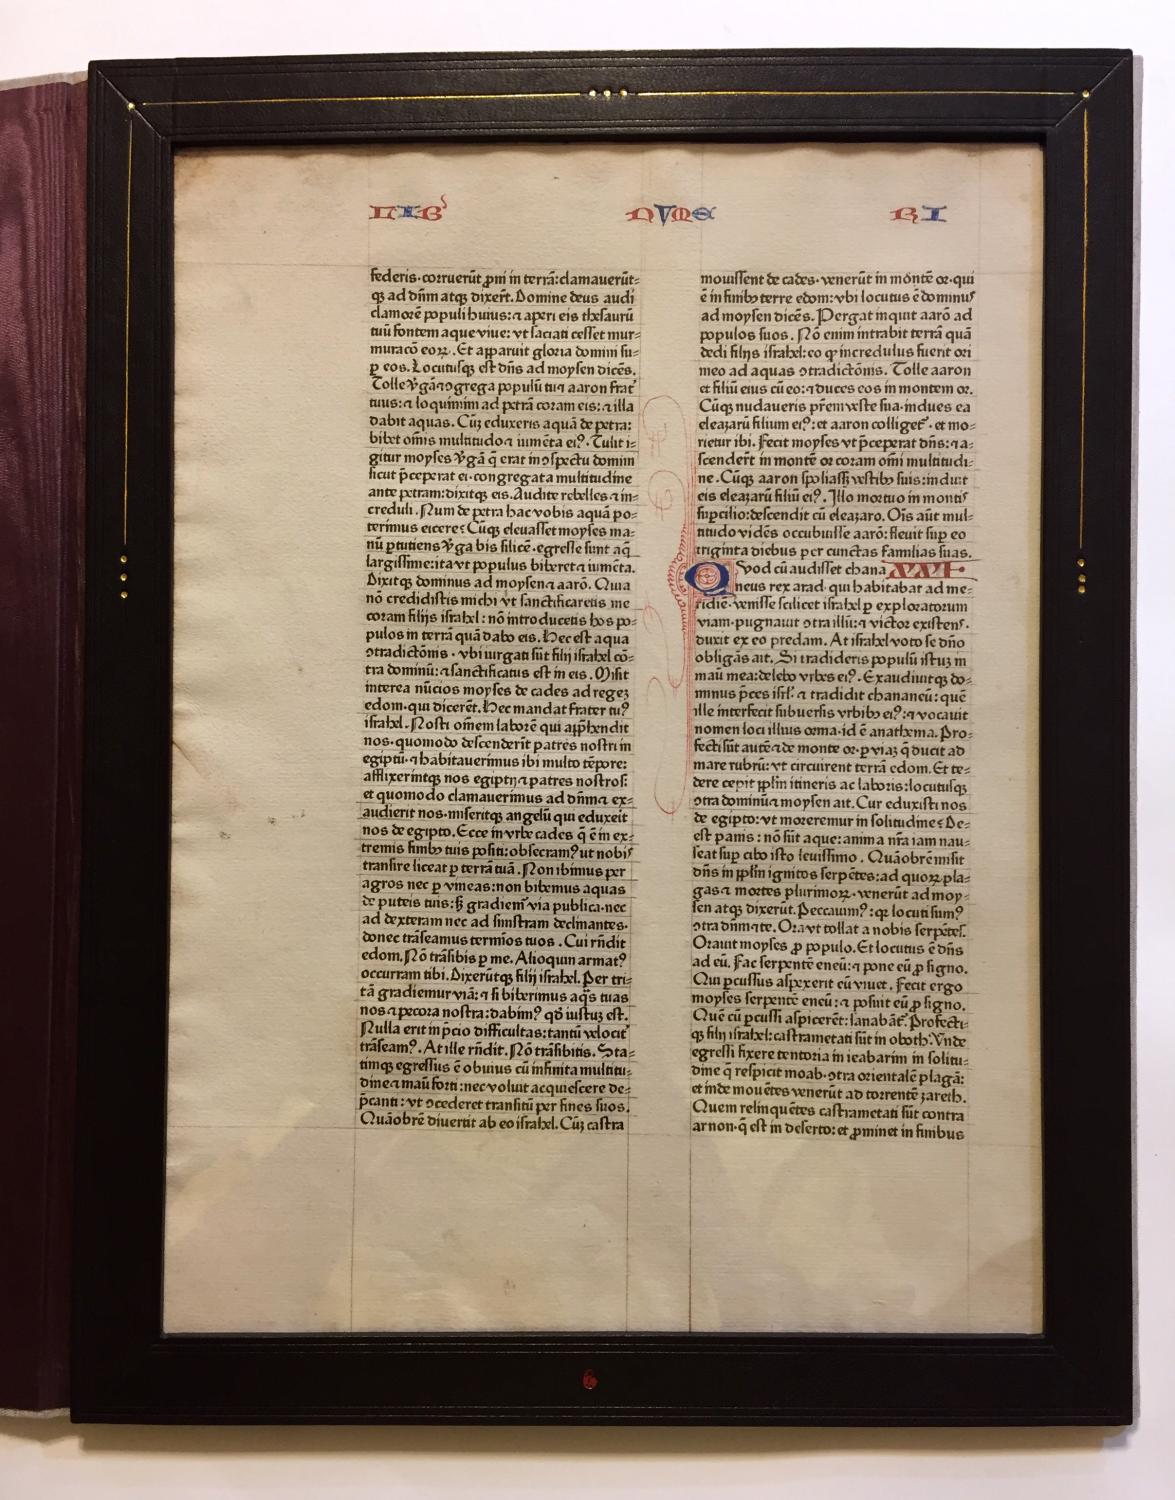 LIB NVME RI
federis·corruerūt ꝓni in terrā:clamauerūt-
qꝫ ad dn̄m atqꝫ dixerūt. Domine deus audi
clamorē populi huius:⁊ aperi eis thesaurū
tuū fontem aque viue: vt saciati cesset mur-
muracō eoꝝ. Et apparuit gloria domini su-
ꝑ eos. Locutusqꝫ est dn̄s ad moysen dicēs.
Tolle v̄gā⁊ ↄgrega populū tu⁊ aaron frat̄
tuus:⁊ loquimini ad petrā coram eis:⁊ illa
dabit aquas. Cūqꝫ eduxeris aquā de petra:
bibet om̄is multitudo⁊ iumēta ei⁹. Tulit i-
gitur moyses v̄gā q̄ erat in ↄspectu domini
sicut p̄ceperat ei·congregata multitudine
ante petram:dixitqꝫ eis. Audite rebelles ⁊ in-
creduli. Num de petra hac vobis aquā po-
terimus eicere? Cūqꝫ eleuasset moyses ma-
nū ꝑcutiens v̄ga bis silicē·egresse sunt aq̄
largissime:ita vt populus biberet⁊ iumēta.
Dixitqꝫ dominus ad moysen⁊ aarō. Quia
nō credidistis michi vt sanctificaretis me
coram filijs israhel: nō introducetis hos po-
pulos in terrā quā dabo eis. Hec est aqua
ↄtradictōnis·vbi iurgati sūt filij israhel cō-
tra dominū:⁊ sanctificatus est in eis. Misit
interea nūcios moyses de cades ad regeꝫ
edom·qui dicerēt. Hec mandat frater tu⁹
israhel. Nosti om̄em laborē qui app̄hendit
nos·quomodo descenderīt patres nostri in
egiptū·⁊ habitauerimus ibi multo tēpore:
afflixerintqꝫ nos egiptij⁊ patres nostros:
et quomodo clamauerimus ad dn̄m⁊ ex-
audierit nos·miseritqꝫ angelū qui eduxeit
nos de egipto. Ecce in vrbe cades q̄ ē in ex-
tremis finibꝫ tuis positi:obsecram⁹ ut nobis
transire liceat ꝑ terrā tuā. Non ibimus per
agros nec ꝑ vineas:non bibemus aquas
de puteis tuis:sꝫ gradiem̄ via publica·nec
ad dexteram nec ad sinistram declinantes·
donec trāseamus termios tuos. Cui rn̄dit
edom. Nō trāsibis ꝑ me. Alioquin armat⁹
occurram tibi. Dixerūtqꝫ filij israhel. Per tri-
tā gradiemur viā:⁊ si biberimus aq̄s tuas
nos⁊ pecora nostra:dabim⁹ qd̄ iustuꝫ est.
Nulla erit in p̄cio difficultas:tantū velocit̄
trāseam⁹. At ille rn̄dit. Nō trāsibitis. Sta-
timqꝫ egressus ē obuius cū infinita multitu-
dine⁊ manū forti:nec voluit acquiescere de-
p̄canti: vt ↄcederet transitū per fines suos.
Quāobrē diuertit ab eo israhel. Cūqꝫ castra
mouissent de cades·venerūt in montē or·qui
ē in finibꝫ terre edom:vbi locutus ē dominus
ad moysen dicēs. Pergat inquit aarō ad
populos suos. Nō enim intrabit terrā quā
dedi filijs israhel:eo ꝙ incredulus fuerit ori
meo ad aquas ↄtradictōnis. Tolle aaron
et filiū eius cū eo:⁊ duces eos in montem or.
Cūqꝫ nudaueris pr̄em veste sua·indues ea
eleazarū filium ei⁹:et aaron colliget̄·et mo-
rietur ibi. Fecit moyses vt p̄ceperat dn̄s:⁊ a-
scenderūt in montē or coram om̄i multitudi-
ne. Cūqꝫ aaron spoliass; vestibꝫ suis:induit
eis eleazarū filiū ei⁹. Illo mortuo in montis
suꝑcilio:descendit cū eleazaro. Ois aūt mul-
titudo vidēs occubuisse aarō: fleuit suꝑ eo
triginta diebus per cunctas familias suas.
Quod cū audisset chana XXI
neus rex arad·qui habitabat ad me-
ridiē·venisse scilicet israhel ꝑ exploratorum
viam·pugnauit ↄtra illū:⁊ victor existens·
duxit ex eo predam. At israhel voto se dn̄o
obligās ait. Si tradideris populū istuꝫ in
manū mea:delebo vrbes ei⁹. Exaudiuitqꝫ do-
minus p̄ces isrl̄ ⁊ tradidit chananeū: quē
ille interfecit subuersis vrbibꝫ ei⁹:⁊ vocauit
nomen loci illius orma·id ē anathema. Pro-
fecti sūt autē⁊ de monte or·ꝑ viaꝫ q̄ ducit ad
mare rubrū:vt circuirent terrā edom. Et te-
dere cepit ppl̄m itineris ac laboris:locutusqꝫ
ↄtra dominū⁊ moysen ait. Cur eduxisti nos
de egipto:vt moreremur in solitudine? De-
est panis: nō sūt aque:anima nr̄a iam nau-
seat suꝑ cibo isto leuissimo. Quāobrē misit
dn̄s in ppl̄m ignitos serpētes:ad quoꝝ pla-
gas⁊ mortes plurimoꝝ·venerūt ad moy-
sen atqꝫ dixerūt. Peccauim⁹:qꝫ locuti sum⁹
ↄtra dn̄m⁊ te. Ora vt tollat a nobis serpētes.
Orauit moyses ꝓ populo. Et locutus ē dn̄s
ad eū. Fac serpentē eneū:⁊ pone eū ꝓ signo.
Qui ꝑcussus aspexerit eū viuet. Fecit ergo
moyses serpentē eneū:⁊ posuit eū ꝓ signo.
Quē cū ꝑcussi aspicerēt:sanabāt̄. Profecti-
qꝫ filij israhel:castrametati sūt in oboth. Vnde
egressi fixere tentoria in ieabarim in solitu-
dine q̄ respicit moab·ↄtra orientalē plagā:
et inde mouētes venerūt ad torrentē zareth.
Quem relinquētes castrametati sūt contra
arnon·q̄ est in deserto:et ꝓminet in finibus